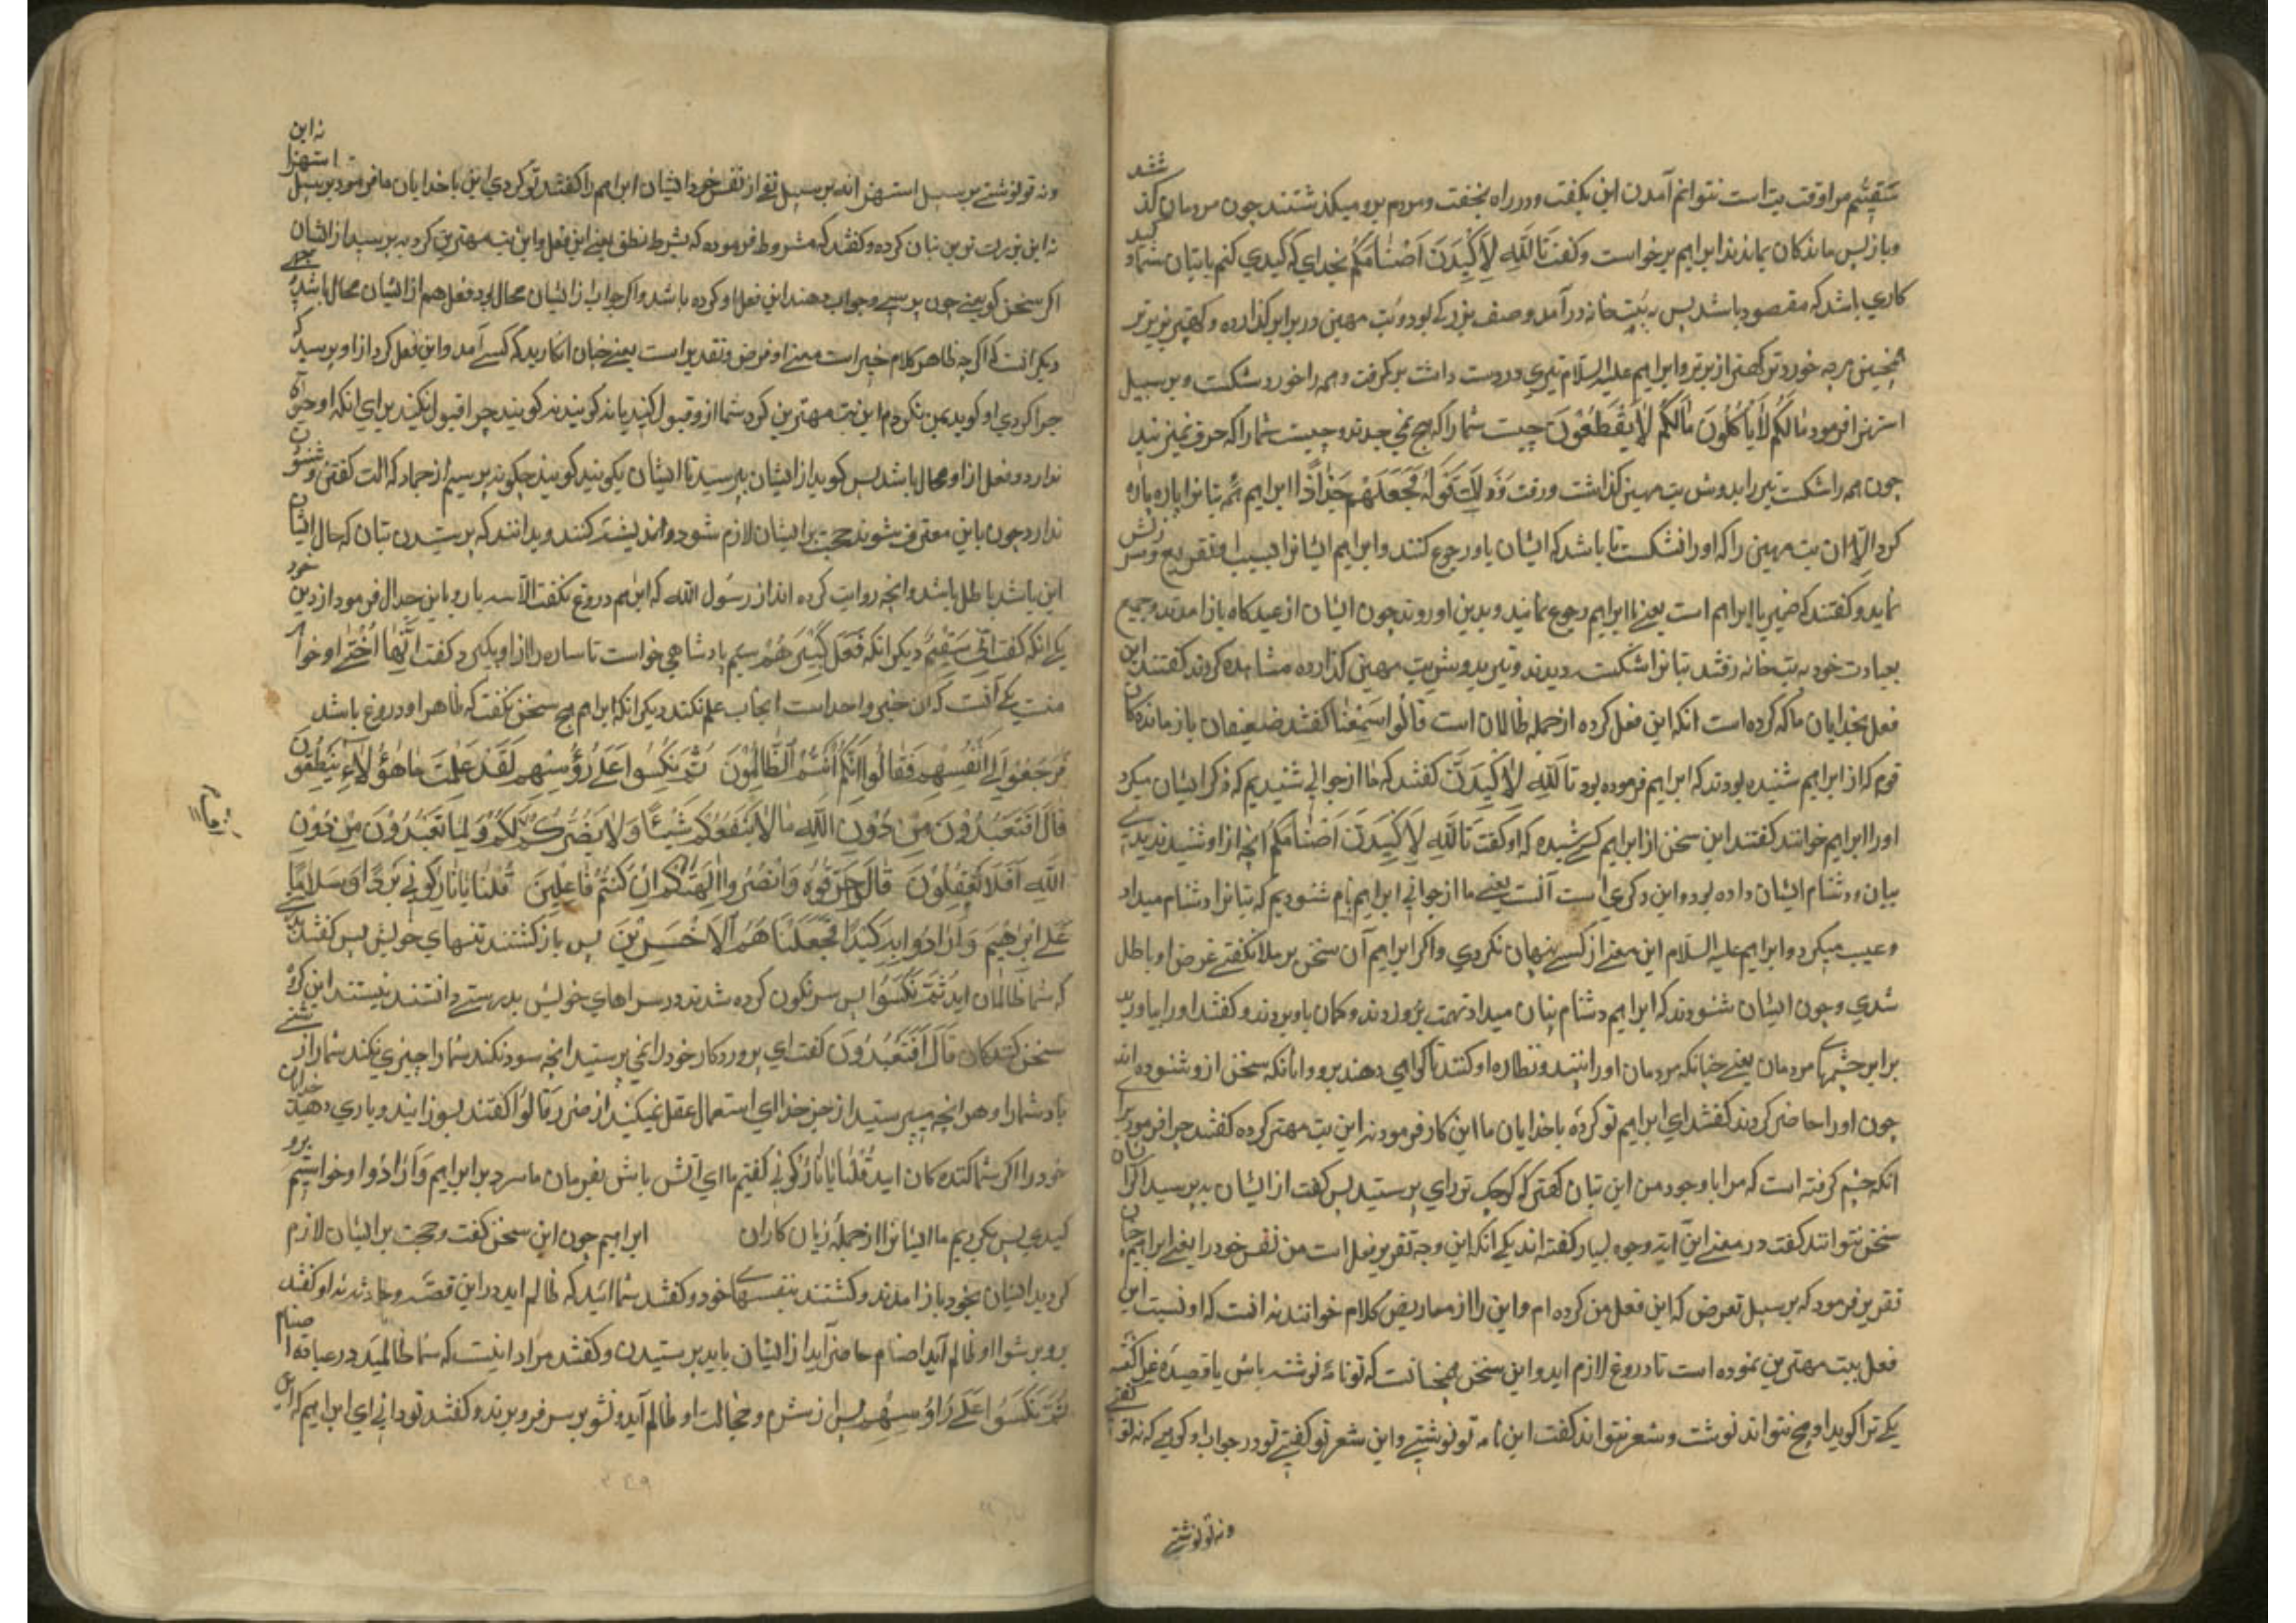 سَقِیمٌ مرا وقت بت است نتوانم آمدن این بکفت و در راه بخفت و مردم برو میکذشتند چون مردمان کذ شتند
و بازپس ماندکان بماندند ابراهیم برخواست و کفت تَاللّٰهِ لَاَکِیدَنَّ اَصْنَامَکُمْ بخدای که کیدی کنم با بتان شما و کید
کاری باشد که مقصود باشد پس به بت خانه در آمد و صف بزرک بود و بت مهین در برابر کذارده و کهتر بربرتر
همچنین هرچه خوردتر کهتر از برتر و ابراهیم علیه السلام تبری در دست داشت برکرفت و همه را خورد شکست و بر سبیل
استهزا فرمود مَا لَکُمْ لَا یَأْکُلُونَ مَا لَکُمْ لَا یَنْطِقُونَ چیست شما را که هیچ نمی خورند و چیست شما را که حرف نمیزنید
چون همه را شکست تبر را بدوش بت مهین کذاشت و رفت فَجَعَلَهُمْ جُذَاذًا ابراهیم همه بتانرا پاره پاره
کرد الا ان بت مهین را که او را نشکست تا باشد که ایشان باو رجوع کنند و ابراهیم ایشانرا بسبب ان تقریع و سرزنش
نماید و کفتند که ضمیر با ابراهیم است یعنی تا ابراهیم رجوع نمانید و بدین او روند چون ایشان از عیدکاه باز امدند و جمیع
بعبادت خود به بت خانه رفتند بتانرا شکست دیدند و تبر بدوش بت مهین کذارده مشاهده کردند کفتند این
فعل بخدایان ما که کرده است انکه این فعل کرده از جمله ظالمان است قَالُوا سَمِعْنَا کفتند ضعیفان بازماندکان
قوم که از ابراهیم شنیده بودند که ابراهیم فرموده بود تَاللّٰهِ لَاَکِیدَنَّ کفتند که ما از جوانی شنیدیم که ذکر ایشان میکرد
او را ابراهیم خوانند کفتند این سخن از ابراهیم کسی شنیده که او کفت تَاللّٰهِ لَاَکِیدَنَّ اَصْنَامَکُمْ انچه از او شنیدند
بیان و دشنام ایشان داده بود و این ذکری است آنست یعنی ما از جوانی ابراهیم نام شنودیم که بتانرا دشنام میداد
و عیب میکرد و ابراهیم علیه السلام این معنی از کسی پنهان نکردی و اکر ابراهیم آن سخن بر ملا نکفتی غرض او باطل
شدی و چون ایشان شنودند که ابراهیم دشنام بتان میداد تهمت برو زدند و کمان باو بردند و کفتند او را بیاورید
برابر چشمهای مردمان یعنی چنانکه مردمان او را بینند و نظاره او کنند تا کواهی دهند برو و انانکه سخن ازو شنوده اند
چون او را حاضر کردند کفتند ای ابراهیم تو کردهٔ باخدایان ما این کار فرمود نه این بت مهتر کرده کفتند چرا فرمود برای
انکه خشم کرفته است که مرا باوجود من این بتان کهتر که کوچک تر رای پرستید پس کفت از ایشان بپرسید اکر ایشان
سخن نتوانند کفت در معنی این آیه وجوه بسیار کفته اند یکی انکه این وجه تقریر فعل است من نفس خود را یعنی ابراهیم چنان
تقریر فرمود که بر سبیل تعرض که این فعل من کرده ام و این را از معاریض کلام خوانند نه انست که او نسبت این
فعل ببت مهترین نموده است تا دروغ لازم اید و این سخن همچنانست که تو نامهٔ نوشته باشی یا قصیدهٔ غرا کفته
یکی ترا کوید او هیچ نتواند نوشت و شعر نتواند کفت این نامه تو نوشتی و این شعر تو کفتی تو در جواب او کویی که نه تو کفتی
ونه تو نوشتی
ونه تو نوشتی بر سبیل استهزا نه بر سبیل نفی از نفس خود ایشان ابراهیم را کفتند تو کردی این با خدایان ما فرمود بر سبیل استهزا نه این
نه این بزرک ترین بتان کرده و کفتند که مشروط فرموده که بشرط نطق یعنی این فعل را این بت مهترین کرد بپرسید از ایشان
اکر سخن کویند یعنی چون پرسی و جواب دهند این فعل او کرده باشد و اکر جواب از ایشان محال بود فعل هم از ایشان محال باشد
دیکر انست که اکرچه ظاهر کلام خبر است معنی او فرض و تقدیر است یعنی چنان انکارید که کسی آمد و این فعل کرد از او پرسید که
چرا کردی او کوید من نکردم این بت مهترین کرد شما ازو قبول کنید یا نه کویند نه کویند چرا قبول نکنید برای انکه او حرکت
ندارد و فعل از او محال باشد پس کوید از ایشان بپرسید تا ایشان بکویند کویند چکونه پرسیم از جماد که الت کفتن و شنودن
ندارد چون باین معترف شوند حجت بر ایشان لازم شود و اندیشه کنند و بدانند که پرستیدن بتان که حال ایشان
این باشد باطل باشد و انچه روایت کرده اند از رسول الله که ابراهیم دروغ نکفت الا سه بار و باین جدال فرمود از دین خود
یکی انکه کفت اِنِّی سَقِیمٌ دیکر انکه فَعَلَهُ کَبِیرُهُمْ سیم پادشاهی خواست تا ساره را از او بکیرد کفت اِنَّهَا اُخْتِی او خواهر
منست یکی آنست که ان خبر واحد است ایجاب علم نکند دیکر انکه ابراهیم هیچ سخن نکفت که ظاهر او دروغ باشد
فَرَجَعُوا اِلَی اَنْفُسِهِمْ فَقَالُوا اِنَّکُمْ اَنْتُمُ الظَّالِمُونَ ثُمَّ نُکِسُوا عَلَی رُؤُسِهِمْ لَقَدْ عَلِمْتَ مَا هٰؤُلَاءِ یَنْطِقُونَ
قَالَ اَفَتَعْبُدُونَ مِنْ دُونِ اللّٰهِ مَا لَا یَنْفَعُکُمْ شَیْئًا وَلَا یَضُرُّکُمْ اُفٍّ لَکُمْ وَلِمَا تَعْبُدُونَ مِنْ دُونِ
اللّٰهِ اَفَلَا تَعْقِلُونَ قَالُوا حَرِّقُوهُ وَانْصُرُوا اٰلِهَتَکُمْ اِنْ کُنْتُمْ فَاعِلِینَ قُلْنَا یَا نَارُ کُونِی بَرْدًا وَسَلَامًا
عَلَی اِبْرٰهِیمَ وَاَرَادُوا بِهِ کَیْدًا فَجَعَلْنَاهُمُ الْاَخْسَرِینَ پس بازکشتند بتنهای خویش پس کفتند
که شما ظالمان اید ثُمَّ نُکِسُوا پس سرنکون کرده شدند در سراهای خویش بدرستی دانستند نیستند این کروه
سخن کنندکان قَالَ اَفَتَعْبُدُونَ کفت ای پروردکار خود را نمی پرستید انچه سود نکند شما را چیزی نکند شما را از
باد شما را و هر انچه میپرستید از جز خدا ای استعمال عقل نمیکنید از ضرر قَالُوا کفتند بسوزانید و یاری دهید خدایان
خود را اکر شما کننده کان اید قُلْنَا یَا نَارُ کُونِی کفتیم ما ای اتش باش بفرمان ما سرد بر ابراهیم وَاَرَادُوا و خواستیم برو
کیدی پس بکردیم ما ایشانرا از جملهٔ زیان کاران ابراهیم چون این سخن کفت و حجت بر ایشان لازم
کردید ایشان بخود باز امدند و کشتند بنفسهای خود و کفتند شما اید که ظالم اید در این قصه و حادثه نه او کفتند
برو بر شوا او ظالم آید اصنام حاضر آید از ایشان باید پرستیدن و کفتند مراد اینست که شما ظالمید در عبادة اصنام
ثُمَّ نُکِسُوا عَلَی رُؤُسِهِمْ پس از شرم و خجالت او ظالم آید و نشو بر سر فرو بردند و کفتند تو دانی ای ابراهیم که این